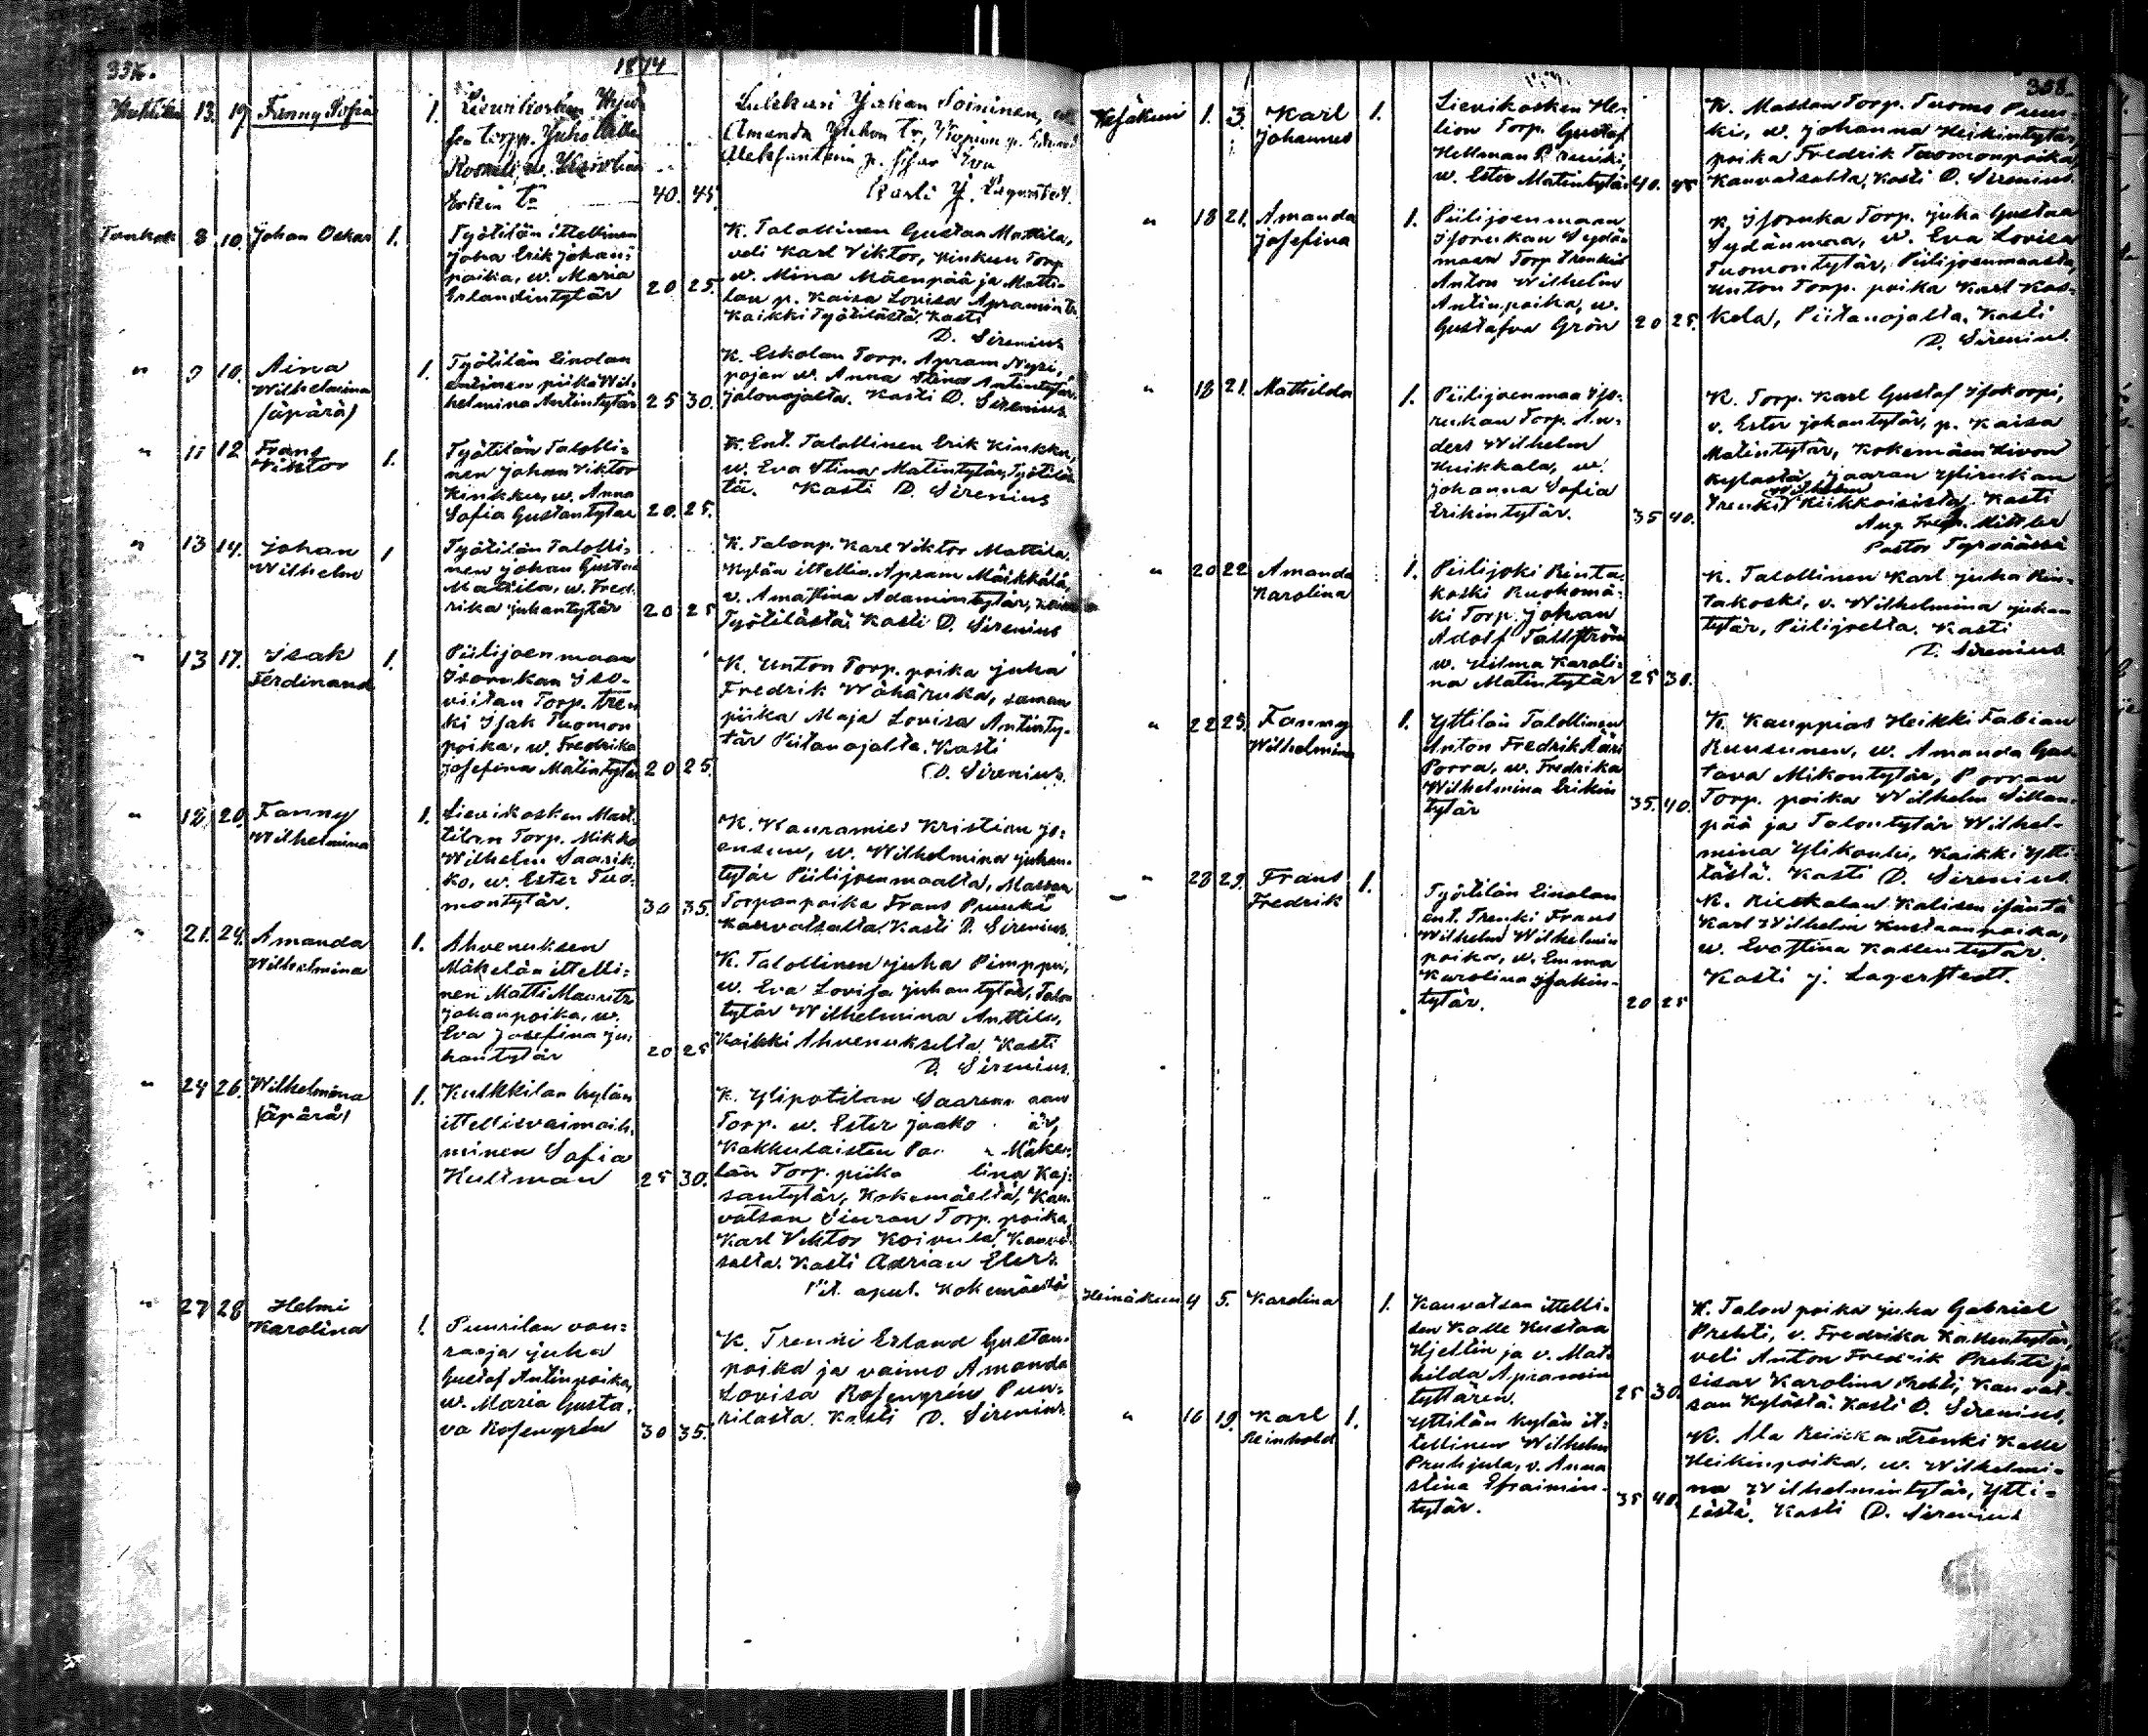 1874
Huhtiku 13. 19. Fanny Sofia 1.
40. 45.
Toukok 8 10. Johan Oskar 1. Työtilän ittellinen
Joha Erik Johan=
poika, w. Maria
Erlandintytär 20 25.
K. Talollinen Gustaa Mattila,
veli Karl Viktor, Kinkun Torp
w. Mina Mäenpää ja Matti=
lan p. Kaisa Lovisa Apramintr.
Kaikki Työtilästä. Kasti
D. Sirenius
" 9 10. Aina
Wilhelmina
(äpärä)
1. Työtilän Einolan
entinen piika Wil=
helmina Antintytär 25 30.
K. Eskolan Torp. Apram
pojan w. Anna Stina Antintytär
Jalonojalta. Kasti D. Sirenius
" 11 12 Frans
Wiktor 1.
Työtilän Talolli=
nen Johan Viktor
Kinkku, w. Anna
Sofia Gustantytär 20. 25.
K. Ent. Talollinen Erik Kinkku,
w. Eva Stina Matintytär, Työtiläs
tä. Kasti D. Sirenius
" 13 14. Johan
Wilhelm 1
Työtilän Talolli=
nen Johan Gustaa
Mattila, w. Fred.
rika Juhantytär 20 25
K. Talonp. Karl Viktor Mattila,
Kylän ittellin. Apram Mäikkälä,
v. Amastina Adamintytär,
Työtilästä. Kasti D. Sirenius
" 13 17. Isak
Ferdinand 1.
Piilijoenmaan
Isorukan Iso-
viitan Torp. tren
ki Isak Tuomon
poika, w. Fredrika
Josefina Matintytär 20 25.
K. Unton Torp. poika Juha
Fredrik Wähäruka, saman
piika Maja Lovisa Antinty-
tär Piitanojalta. Kasti
D. Sirenius.
" 18 20. Fanny
Wilhelmina
1. Lievikosken Mart
tilan Torp. Mikko
Wilhelm Saarik=
ko, w. Ester Tuo=
montytär. 30 35.
K. Kauramies Kristian Jo=
ensuu, w. Wilhelmina Juhan=
tytär Piilijoenmaalta, Massan
Torpanpoika Frans Pruuki
Kauvatsalta. Kasti D. Sirenius.
" 21. 24. Amanda
Wilhelmina
1. Ahvenuksen
Mäkelän ittelli=
nen Matti Mauritz
Johanpoika, w.
Eva Josefina Ju=
hantytär 20 25
K. Talollinen Juha Pimppu,
w. Eva Lovisa Juhantytär, Talon
tytär Wilhelmina Anttila,
Kaikki Ahvenukselta Kasti
D. Sirenius.
" 24 26. Wilhelmina
(äpärä)
1. Kulkkilan kylän
ittellisvaimoih=
minen Sofia
Kullman 25 30.
K. Ylipotilan
Torp. w. Ester Jaako
Kakkulaisten Mäke=
län Torp. piika lina Kaj=
santytär, Kokemäeltä, Kau=
vatsan Torp. poika,
Karl Viktor Koivula, Kauva
salta. Kasti Adrian Elers
Vit. apul. Kokemäeltä
" 27 28 Helmi
Karolina
1. Puurilan van=
raaja Juha
Gustaf Antinpoika,
w. Maria Gusta=
va Rosengrén 30 35.
K. Trenki Erland Gustan=
poika ja vaimo Amanda
Lovisa Rosengrén Puu=
rilasta. Kasti D. Sirenius.
308.
Kesäkuu 1. 3. Karl
Johannes 1.
Lievikosken Hei=
lion Torp. Gustaf
Hellman Pruuki,
w. Ester Matintytär 40. 45
K. Massan Torp. Tuomo Pruu=
ki, w. Johanna Heikintytär,
poika Fredrik Tuomonpoika
Kauvatsalta, Kasti D. Sirenius.
" 18 21. Amanda
Josefina
1. Piilijoenmaan
Isorukan Sydän=
maan Torp. Trenkis
Anton Wilhelm
Antinpoika, w.
Gustafva Grön 20 25.
K. Isoruka Torp. Juha Gustaa
Sydänmaa, w. Eva Lovisa
Tuomontytär, Piilijoenmaasta,
Unton Torp. poika Karl Kos=
kela, Piitanojalta. Kasti
D. Sirenius.
" 18 21. Mathilda
1. Piilijoenmaa Iso-
rukan Torp. An=
ders Wilhelm
Huikkala, w.
Johanna Sofia
Erikintytär. 35 40.
K. Torp. Karl Gustaf Isokorpi,
v. Ester Johantytär, p. Kaisa
Matintytär, Kokemäen
kylästä, Ylirukan
Wilhelm
Trenki Kasti
Aug. Fredr.
Pastor Tyrväässä
" 20 22 Amanda
Karolina
1. Piilijoki Rinta=
koski Ruohomä=
ki Torp. Johan
Adolf Tallström
w. Hilma Karoli=
na Matintytär 25 30.
K. Talollinen Karl Juha Rin=
takoski, v. Wilhelmina Juhan
tytär, Piilijoelta. Kasti
D. Sirenius.
" 22 25. Fanny
Wilhelmina
1. Yttilän Talollinen
Anton Fredrik Ääri
Porra, w. Fredrika
Wilhelmina Erikin
tytär 35. 40.
K. Kauppias Heikki Fabian
Ruusunen, w. Amanda Gus
tava Mikontytär, Porran
Torp. poika Wilhelm Sillan=
pää ja Talontytär Wilhel=
mina Ylikouki, Kaikki Ytti
lästä. Kasti D. Sirenius.
" 28 29. Frans
Fredrik 1.
Työtilän Einolan
ent. Trenki Frans
Wilhelm Wilhelmin
poika, w. Emma
Karolina Isakin-
tytär. 20 25
K. Rieskalan Kalisen isäntä
Karl Wilhelm Kustaanpoika,
w. Evastina Kallentytär.
Kasti J. Lagerstedt.
Heinäkuu 4 5. Karolina
1. Kauvatsan ittelli=
sen Kalle Kustaa
Hjellin ja v. Mat=
hilda Apramin
tyttären. 25 30.
K. Talon poika Juha Gabriel
Prehti, v. Fredrika Kallentytär,
veli Anton Fredrik Prehti ja
sisar Karolina Prehti, Kauvat
san Kylästä. Kasti D. Sirenius.
" 16 19. Karl
Reinhold 1.
Yttilän kylän it=
tellinen Wilhelm
Pruhjula, v. Anna
stina Efraimin-
tytär. 35 40.
K. Ala Trenki Kalle
Heikinpoika, w. Wilhelmi=
na Wilhelmintytär, Ytti=
lästä. Kasti D. Sirenius